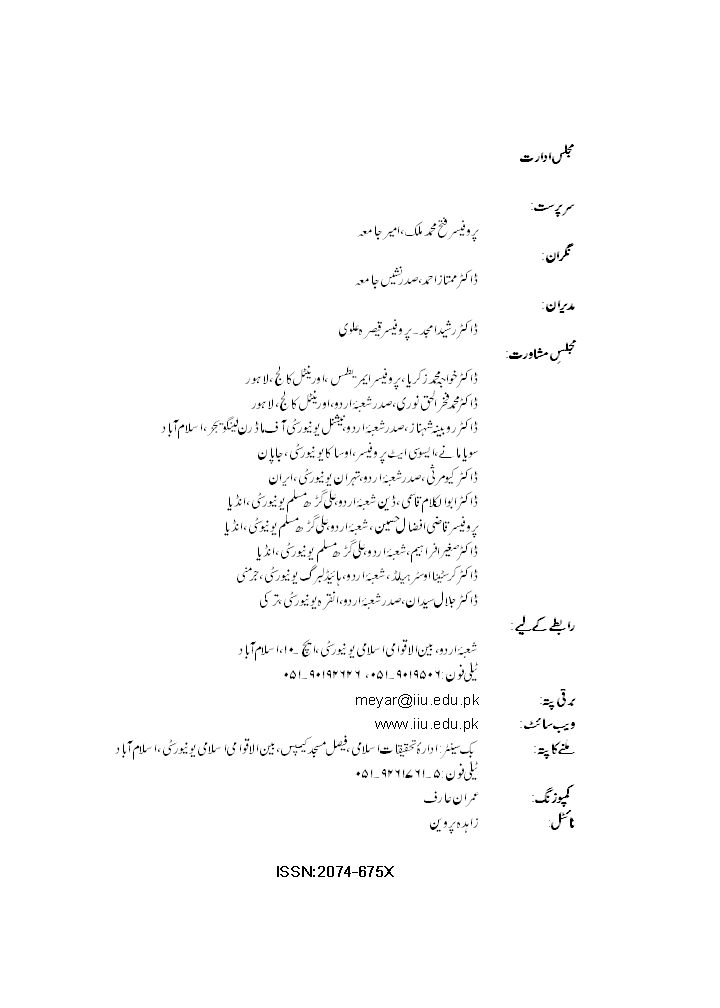 مجلس ادارت
سرپرست:
پروفیسر فتح محمد ملک، امیر جامعہ
نگران:
ڈاکٹر ممتاز احمد، صدر نشیں جامعہ
مدیران:
ڈاکٹر رشید امجد ۔ پروفیسر قیصرہ علوی
مجلسِ مشاورت:
ڈاکٹر خواجہ محمد زکریا، پروفیسر ایمریطس، اورینٹل کالج، لاہور
ڈاکٹر محمد فخر الحق نوری، صدر شعبۂ اردو، اورینٹل کالج، لاہور
ڈاکٹر روبینہ شہناز، صدر شعبۂ اردو، نیشنل یونیورسٹی آف ماڈرن لینگویجز، اسلام آباد
سویامانے، ایسوسی ایٹ پروفیسر، اوساکا یونیورسٹی، جاپان
ڈاکٹر کیومرثی، صدر شعبۂ اردو، تہران یونیورسٹی، ایران
ڈاکٹر ابوالکلام قاسمی، ڈین شعبۂ اردو، علی گڑھ مسلم یونیورسٹی، انڈیا
پروفیسر قاضی افضال حسین، شعبۂ اردو، علی گڑھ مسلم یونیوسٹی، انڈیا
ڈاکٹر صغیر افراہیم، شعبۂ اردو، علی گڑھ مسلم یونیورسٹی، انڈیا
ڈاکٹر کرسٹینا اوسٹر ہیلڈ، شعبۂ اردو، ہائیڈلبرگ یونیورسٹی، جرمنی
ڈاکٹر جلال سیدان، صدر شعبۂ اردو، انقرہ یونیورسٹی، ترکی
رابطے کے لیے:
شعبۂ اردو، بین الاقوامی اسلامی یونیورسٹی، ایچ ۔۱۰، اسلام آباد
ٹیلی فون: ۹۰۱۹۵۰۶۔۰۵۱، ۹۰۱۹۲۶۲۶۔۰۵۱
برقی پتہ: meyar@iiu.edu.pk
ویب سائٹ: www.iiu.edu.pk
ملنے کا پتہ: بک سینٹر: ادارۂ تحقیقات اسلامی، فیصل مسجد کیمپس، بین الاقوامی اسلامی یونیورسٹی، اسلام آباد
ٹیلی فون: ۵۔۹۲۶۱۷۶۱۔۰۵۱
کمپوزنگ: عمران عارف
ٹائٹل: زاہدہ پروین
ISSN:2074-675X